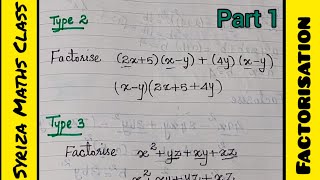 Part 1
Type 2
Factorise (2x+5)(x-y) + (4y)(x-y)
(x-y)(2x+5+4y)
Type 3
Factorise x²+yz+xy+xz
x²+xy+yz+xz
SYRIZA MATHS CLASS
FACTORISATION